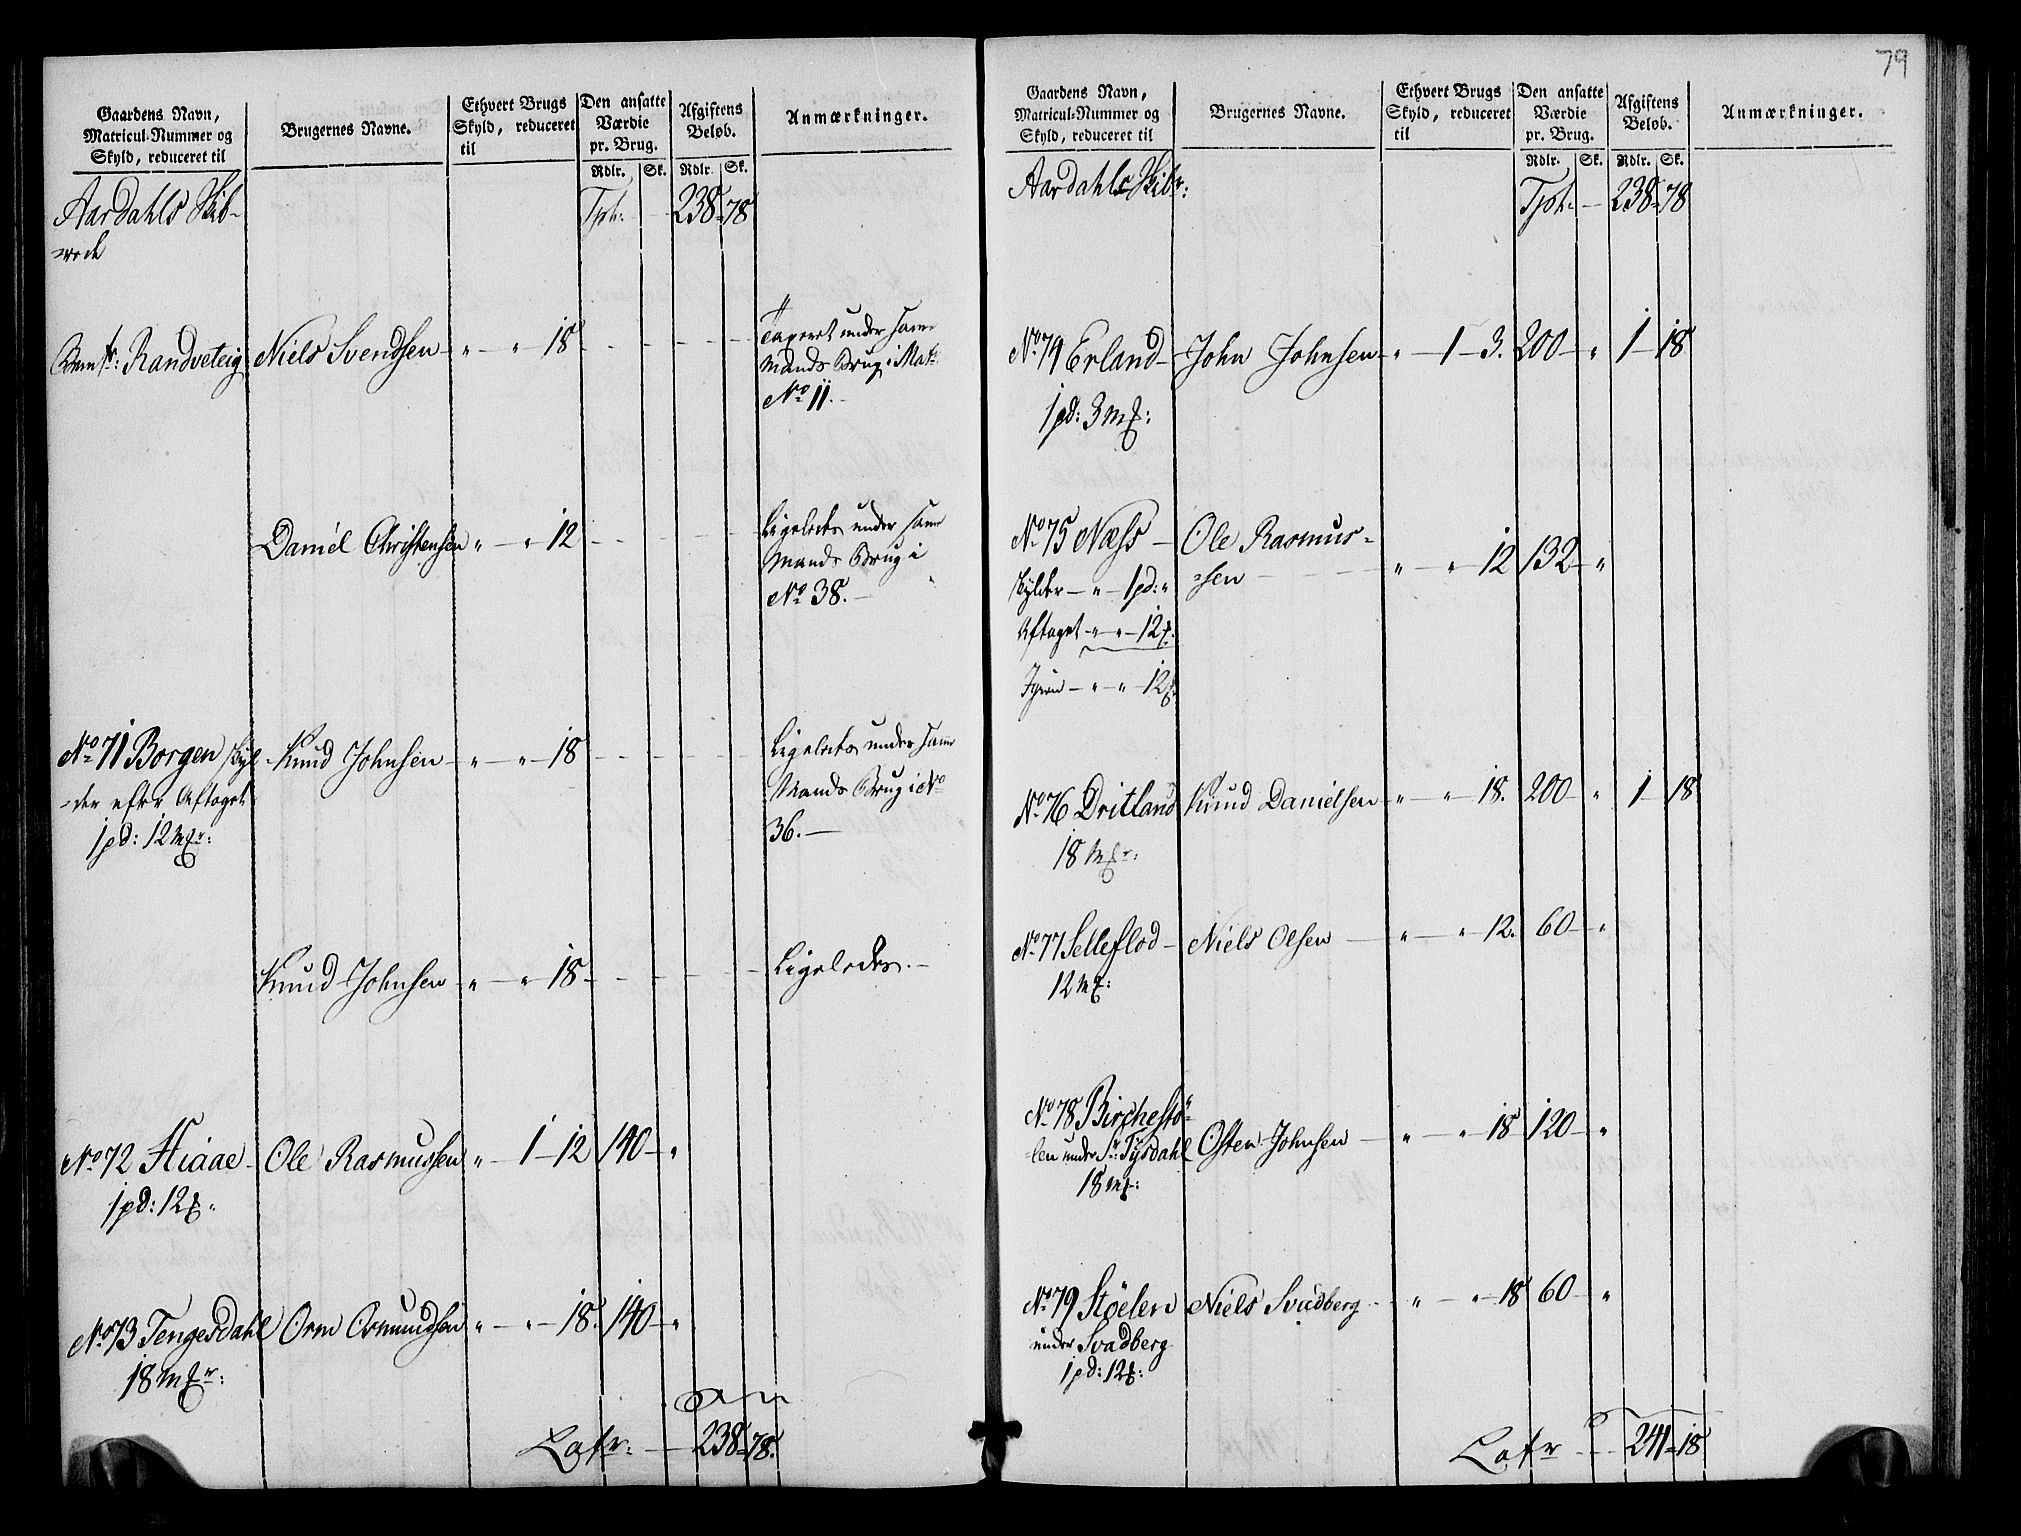 Gaardens Navn,
Matricul-Nummer og
Skyld, reduceret til
Brugernes Navne.
Ethvert Brugs
Skyld, reduceret
til
Den ansatte
Værdie
pr. Brug.
Rdlr. Sk.
Afgiftens
Beløb.
Rdlr. Sk.
Anmærkninger.
Aardahls Skib-
=rede
Tpt: — 238 = 78
Randveteig Niels Svendsen — „ — „ — 18
Taxeret under samme
Mands Brug i Mat:
No 11. —
Daniel Christensen „ — „ 12
Ligeledes under samme
Mands Brug i
No 38. —
No 71 Borgen skyl- Knud Johnsen — „ — „ — 18
-der efter Aftaget
1 pd: 12 mkr:
Ligeledes under samme
Mands Brug i No
36. —
Knud Johnsen — „ — „ — 18
Ligeledes. —
No 72 Hiaae — Ole Rasmussen „ — 1 — 12 140 — „
1 pd: 12
No 73 Tengesdahl Orm Ormundsen „ — „ — 18. 140 — „
18 mkr:
Latr: — 238 = 78.
79
Gaardens Navn,
Matricul-Nummer og
Skyld, reduceret til
Brugernes Navne.
Ethvert Brugs
Skyld, reduceret
til
Den ansatte
Værdie
pr. Brug.
Rdlr. Sk.
Afgiftens
Beløb.
Rdlr. Sk.
Anmærkninger.
Aardahls Skibr:
Tpt: — 238 = 78
No 79 Erland — John Johnsen — „ — 1 — 3. 200 — „ 1 — 18
1 pd: 3 mk:
No 75 Næss — Ole Rasmus-
=sen — „ — „ 12 132 — „
skylder — „ — 1 pd: „
Aftaget — „ „ — 12
Igien — „ — „ — 12
No 76 Dritland Knud Danielsen — „ — „ — 18. 200 — „ 1 — 18
18 mkr:
No 77 Selleflod — Niels Olsen — „ — „ 12. 60 — „
12 mk:
No 78 Birchestö-
-len under Tysdahl Osten Johnsen — „ — „ 18 120 — „
18 mk:
No 79 Støelen Niels Svadberg — „ — „ — 18 60 — „
under Svadberg
1 pd: 12
Latr — 241 = 18